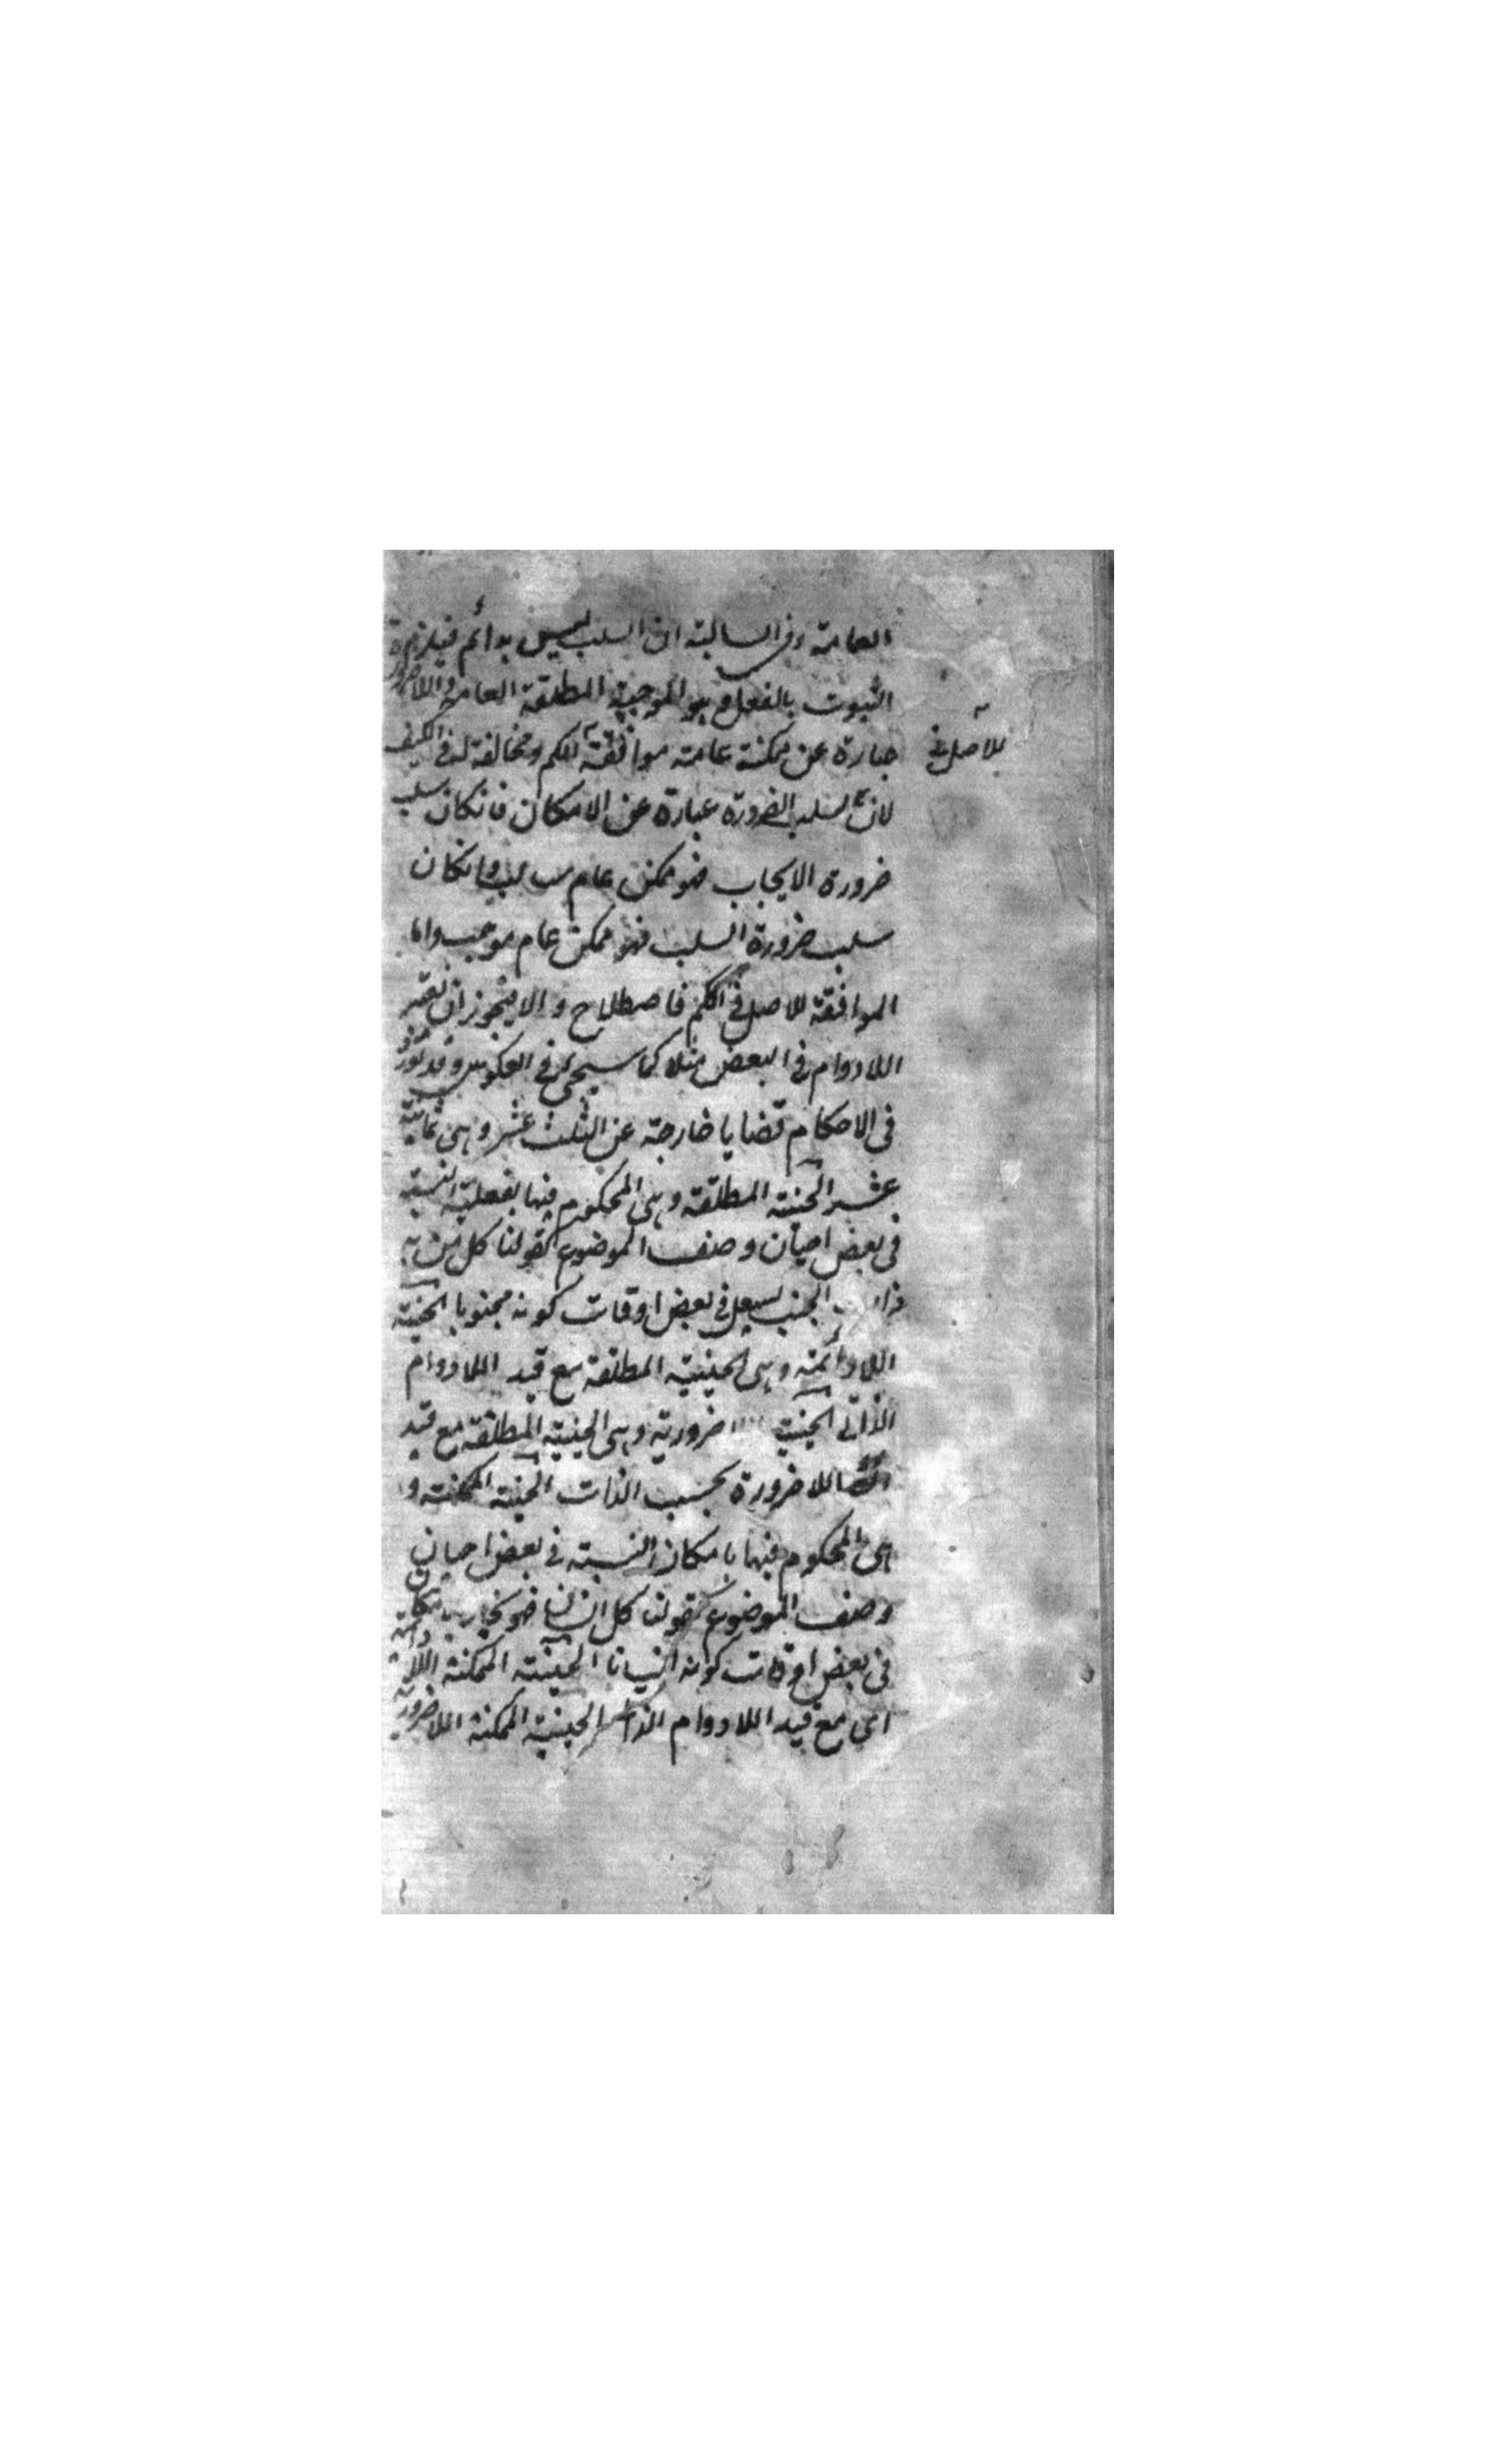 العامة وفي السالبة ان السلب ليس بدائم فيلزمه
الثبوت بالفعل وهو الموجبة المطلقة العامة واللاضرورة
عبارة عن ممكنة عامة موافقة للكم ومخالفة له في الكيف
للاصل في
لان سلب الضرورة عبارة عن الامكان فانكان سلب
ضرورة الايجاب فهو ممكن عام سالب وانكان
سلب ضرورة السلب فهو ممكن عام موجب واما
الموافقة للاصل في الكم فاصطلاح والا فيجوز ان نعتبر
اللادوام في البعض مثلا كما سيجئ في العكوس وقد تورد
في الاحكام قضايا خارجة عن الثلث عشر وهي ثمانية
عشر الحينية المطلقة وهي المحكوم فيها بفعلية النسبة
في بعض احيان وصف الموضوع كقولنا كل من به
ذات الجنب يسعل في بعض اوقات كونه مجنوبا الحينية
اللادائمة وهي الحينية المطلقة مع قيد اللادوام
الذاتي الحينية ضرورية وهي الحينية المطلقة مع قيد
اللاضرورة بحسب الذات الحينية الممكنة و
هي المحكوم فيها بامكان النسبة في بعض احيان
وصف الموضوع كقولنا كل انسان فهو كاتب بالامكان
في بعض اوقات كونه انسانا الحينية الممكنة اللادائمة
اي مع قيد اللادوام الذاتي الحينية الممكنة اللاضرورية